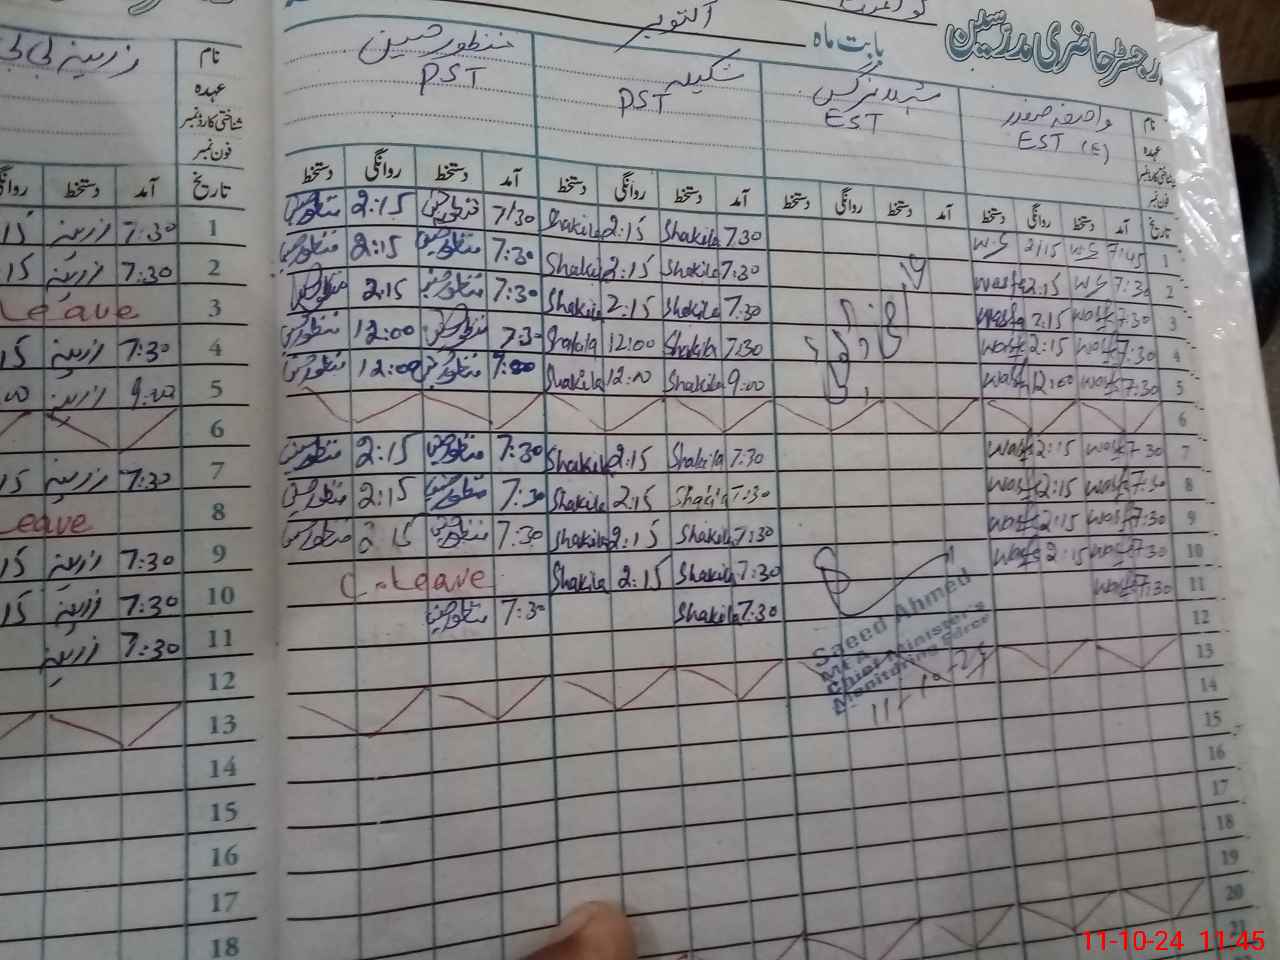 رجسٹر حاضری مدرسین
بابت ماہ اکتوبر
نام زرینہ بی بی
عہدہ
شناختی کارڈ نمبر
فون نمبر
تاریخ آمد دستخط
1 7:30 زرینہ 15
2 7:30 زرینہ 15
3 Leave
4 7:30 زرینہ 15
5 9:00 زرینہ 00
6
7 7:30 زرینہ 15
8 Leave
9 7:30 زرینہ 15
10 7:30 زرینہ 15
11 7:30 زرینہ
12
13
14
15
16
17
18
نام
عہدہ
فون نمبر
EST (E)
EST
شکیلہ
PST
منظور حسین
PST
تاریخ آمد دستخط روانگی دستخط آمد دستخط روانگی دستخط آمد دستخط روانگی دستخط آمد دستخط روانگی دستخط
1 7:45 W.S 2:15 W.S 7:30 Shakila 2:15 Shakila 7:30 منظور حسین 2:15 منظور حسین
2 7:30 WS 2:15 Wasfa 7:30 Shakila 2:15 Shakila 7:30 منظور حسین 2:15 منظور حسین
3 7:30 Wasfa 2:15 Wasfa 7:30 Shakila 2:15 Shakila 7:30 منظور حسین 2:15 منظور حسین
4 7:30 Wasfa 2:15 Wasfa 7:30 Shakila 12:00 Shakila 7:30 منظور حسین 12:00 منظور حسین
5 7:30 Wasfa 12:00 Wasfa 9:00 Shakila 12:00 Shakila منظور حسین 12:00 منظور حسین
6
7 7:30 Wasfa 2:15 Wasfa 7:30 Shakila 2:15 Shakila 7:30 منظور حسین 2:15 منظور حسین
8 7:30 Wasfa 2:15 Wasfa 7:30 Shakila 2:15 Shakila 7:30 منظور حسین 2:15 منظور حسین
9 7:30 Wasfa 2:15 Wasfa 7:30 Shakila 2:15 Shakila 7:30 منظور حسین 2:15 منظور حسین
10 7:30 Wasfa 2:15 Wasfa 7:30 Shakila 2:15 Shakila C-Leave
11 7:30 Wasfa 7:30 Shakila 7:30 منظور حسین
12
13
14
15
16
17
18
19
20
21
Saeed Ahmed
MEA
Chief Minister's
Monitoring Force
11-10-24
11-10-24 11:45